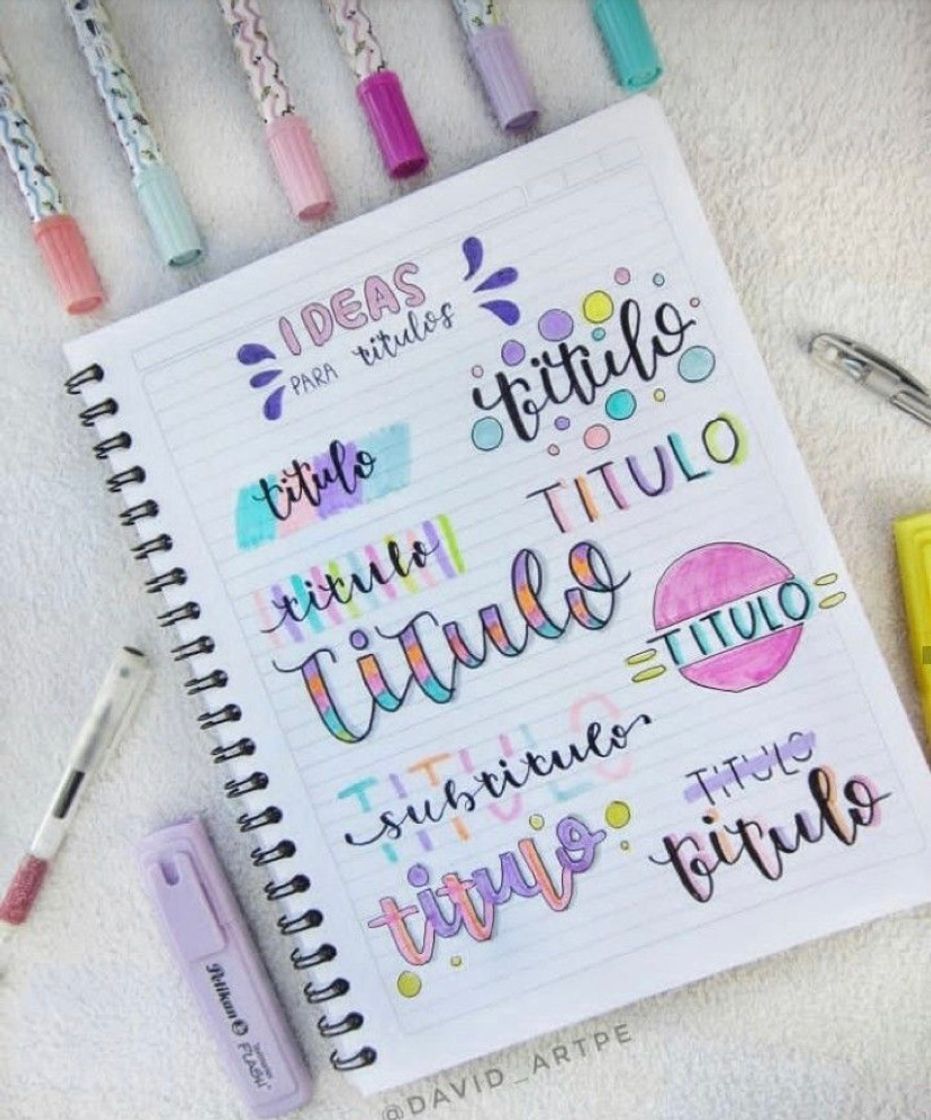 IDEAS
PARA titulos
titulo
titulo
TITULO
titulo
titulo
TITULO
TITULO
subtitulo
TITULO
titulo
titulo
Pelikan
FLASH
@DAVID_ARTPE